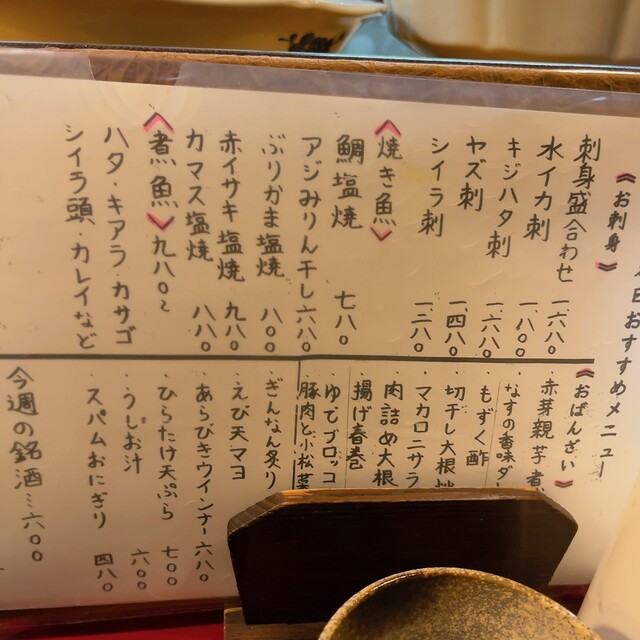 日おすすめメニュー
《お刺身》
刺身盛合わせ 一六八〇
水イカ刺 一八〇〇
キジハタ刺 一六八〇
ヤズ刺 一四八〇
シイラ刺 一二八〇
〈焼き魚〉
鯛塩焼 七八〇
アジみりん干し 六八〇
ぶりかま塩焼 八〇〇
赤イサキ塩焼 九八〇
カマス塩焼 八八〇
〈煮魚〉九八〇〜
ハタ・キアラ・カサゴ
シイラ頭・カレイなど
《おばんざい》
・赤芽親芋煮
・なすの香味ダ
・もずく酢
・切干し大根
・マカロニサラ
・肉詰め大根
揚げ春巻
・ゆでブロッコ
豚肉と小松菜
・ぎんなん炙り
・えび天マヨ
・あらびきウインナー 六八〇
・ひらたけ天ぷら 七〇〇
・うしお汁 六〇〇
・スパムおにぎり 四八〇
今週の銘酒…六〇〇